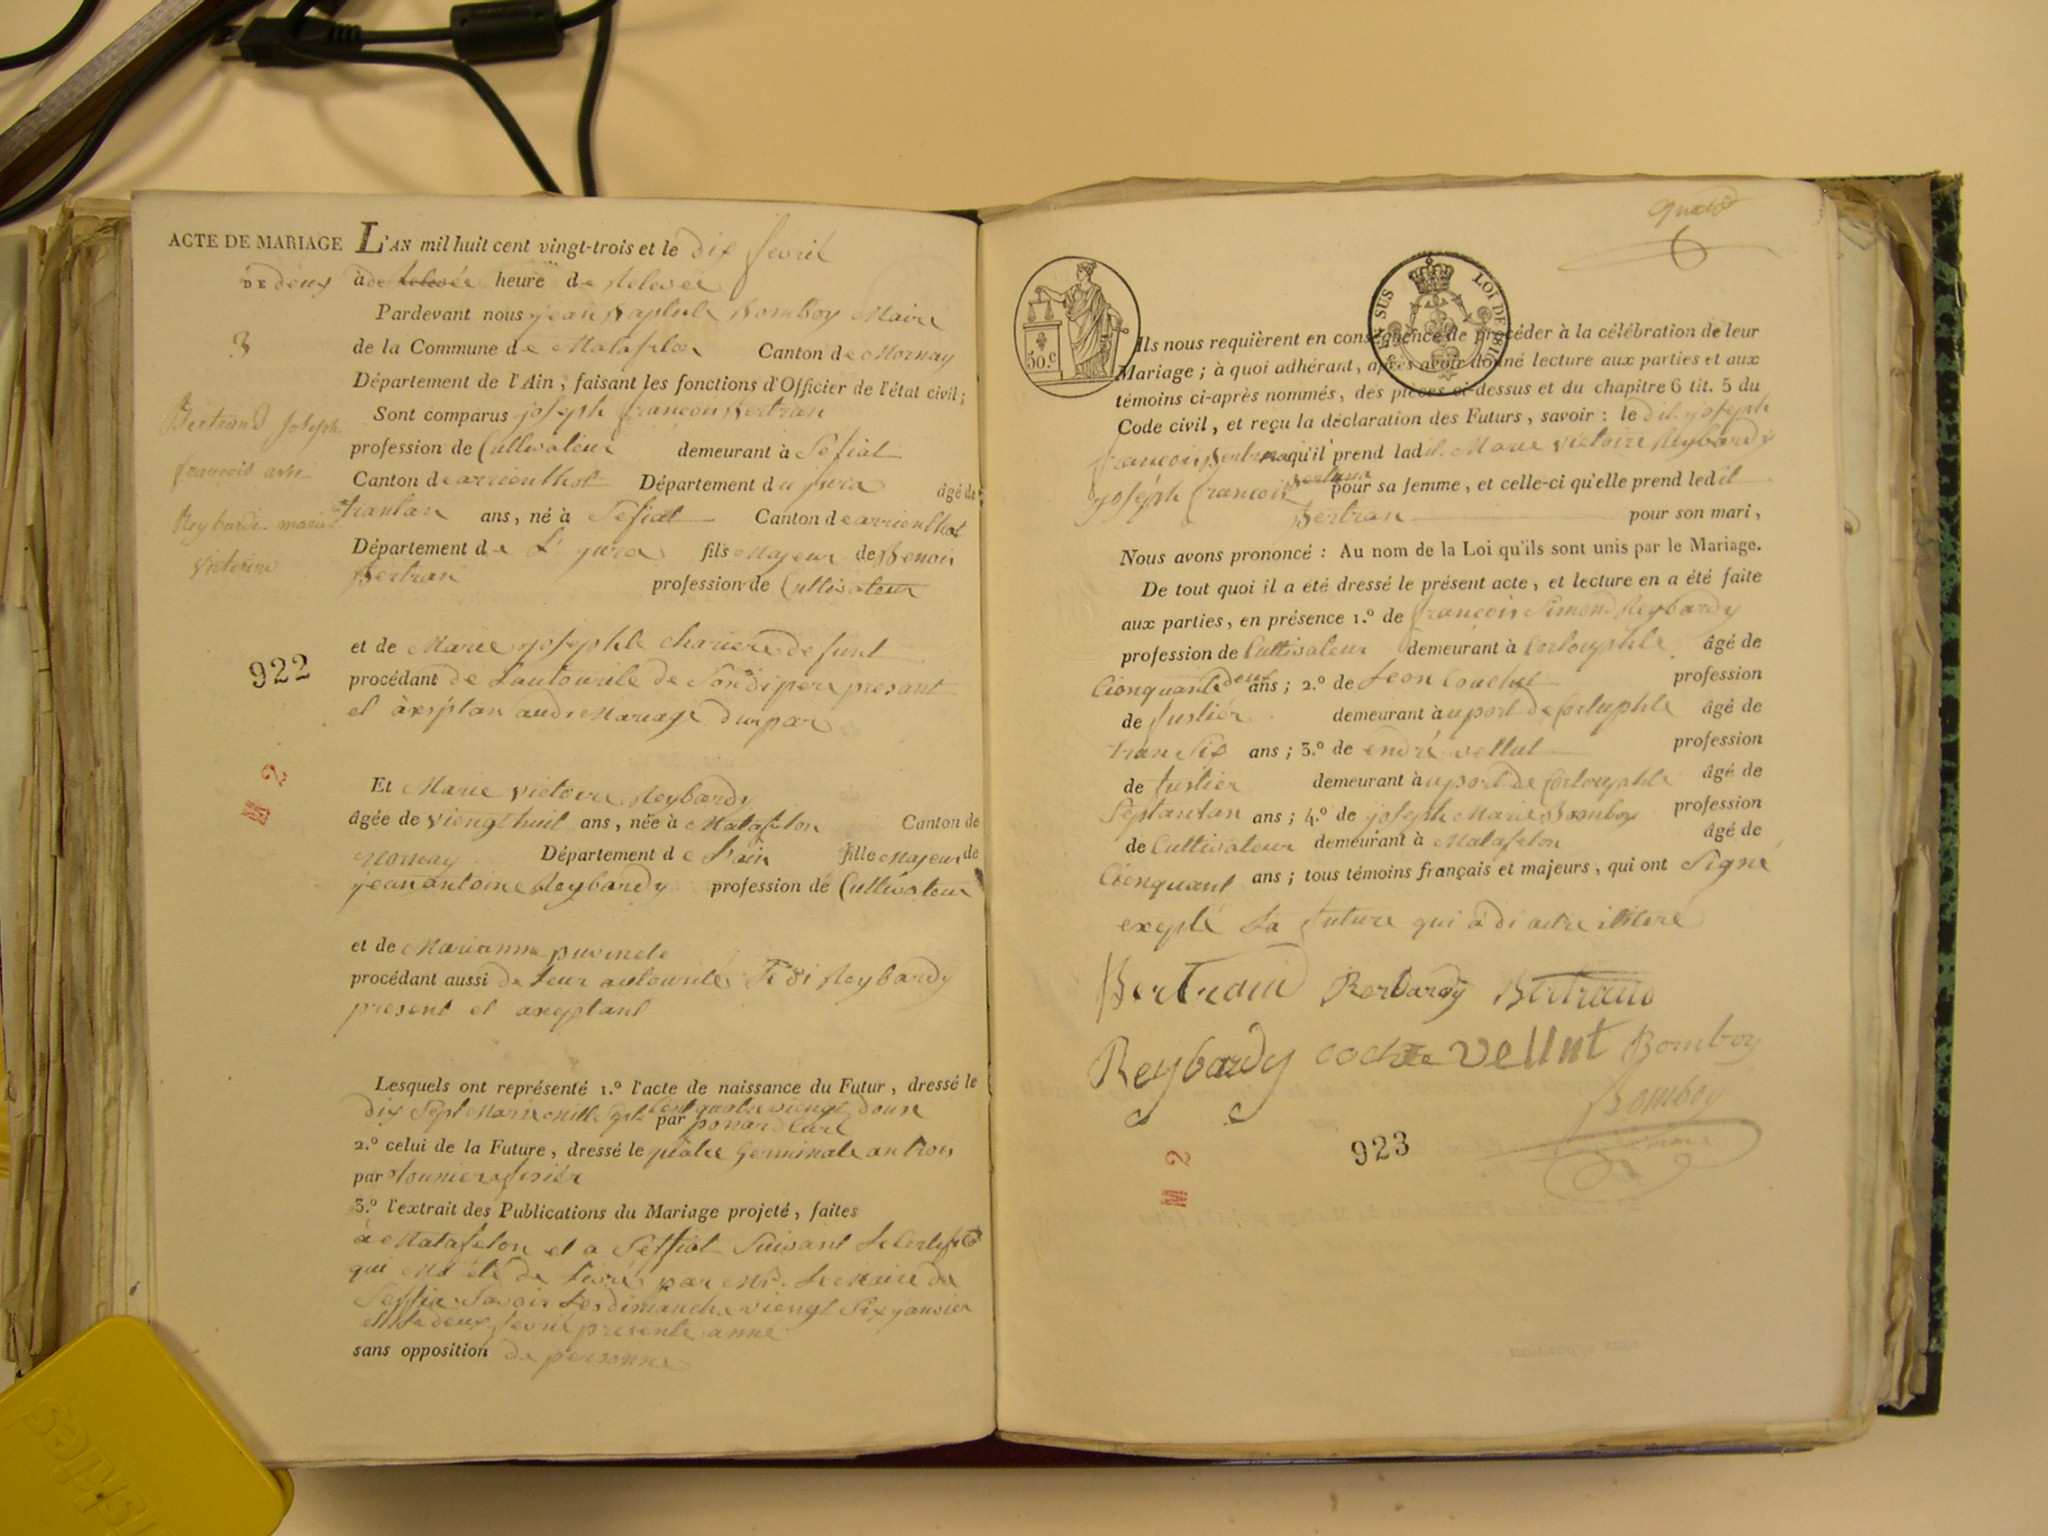 ACTE DE MARIAGE
DE deux
3
Bertrand joseph
francois avec
Reybarde marie
victoire
922
M 2
L'AN mil huit cent vingt-trois et le dix fevril
à de relevée heure de relevée
Pardevant nous jean Baptiste Bomboy Maire
de la Commune de Matafelon Canton de Mornay
Département de l'Ain, faisant les fonctions d'Officier de l'état civil;
Sont comparus joseph françois Bertran
profession de Cultivateur demeurant à Sesiat
Canton de arrienthot Département du jura âgé de
trantan ans, né à Sesiat Canton de arrienthot
Département de L jura fils Majeur de Benoir
Bertran profession de Cultivateur
et de Marie josephte chariere defunt
procédant de Lautourité de Sondi pere presant
et àxeptan audi Mariage dunpar
Et Marie victoire Reybardy
âgée de viengt huit ans, née à Matafelon Canton de
Mornay Département de Lain fille Majeur de
jean antoine Reybardy profession de Cultivateur
et de Marianne
procédant aussi de Leur autourité Ledi Reybardy
present et axeptant
Lesquels ont représenté 1.º l'acte de naissance du Futur, dressé le
dix Sept Mars Mille Sept Cent quatre viengt douse
par ponard Curé
2.º celui de la Future, dressé le Germinale an trois
par
3.º l'extrait des Publications du Mariage projeté, faites
à Matafelon et a Sessiat Suivant Le Certificat
qui Ma été de Livré par Mr. Le Maire de
Sessia Savoir Les dimanche viengt Six janvier
et Le deux fevrié presente anné
sans opposition de personne
6
50.c
EN SUS LOI DE 1816
Ils nous requièrent en conséquence de procéder à la célébration de leur
Mariage; à quoi adhérant, après avoir donné lecture aux parties et aux
témoins ci-après nommés, des pièces ci-dessus et du chapitre 6 tit. 5 du
Code civil, et reçu la déclaration des Futurs, savoir: le dit joseph
françois Bertran qu'il prend ladit. Marie victoire Reybardy
pour sa femme, et celle-ci qu'elle prend ledit
joseph francois Bertran
Bertran pour son mari,
Nous avons prononcé: Au nom de la Loi qu'ils sont unis par le Mariage.
De tout quoi il a eté dressé le présent acte, et lecture en a été faite
aux parties, en présence 1.º de françois Simond Reybardy
profession de Cultivateur demeurant à Corlouphle âgé de
Cienquante deux ans; 2.º de Leon Couchet profession
de fustier demeurant àu port de Corluphle âgé de
tran Six ans; 3.º de endré vellut profession
de fustier demeurant àu port de Corlouphle âgé de
Septantan ans; 4.º de joseph Marie Bomboy profession
de Cultivateur demeurant à Matafelon âgé de
Cienquant ans; tous témoins français et majeurs, qui ont Signé
exepté La future qui à di aitre illiteré
Bertrand Reibardy Bertrand
Reybardy cochte vellut Bomboy
Bomboy
923
M 2